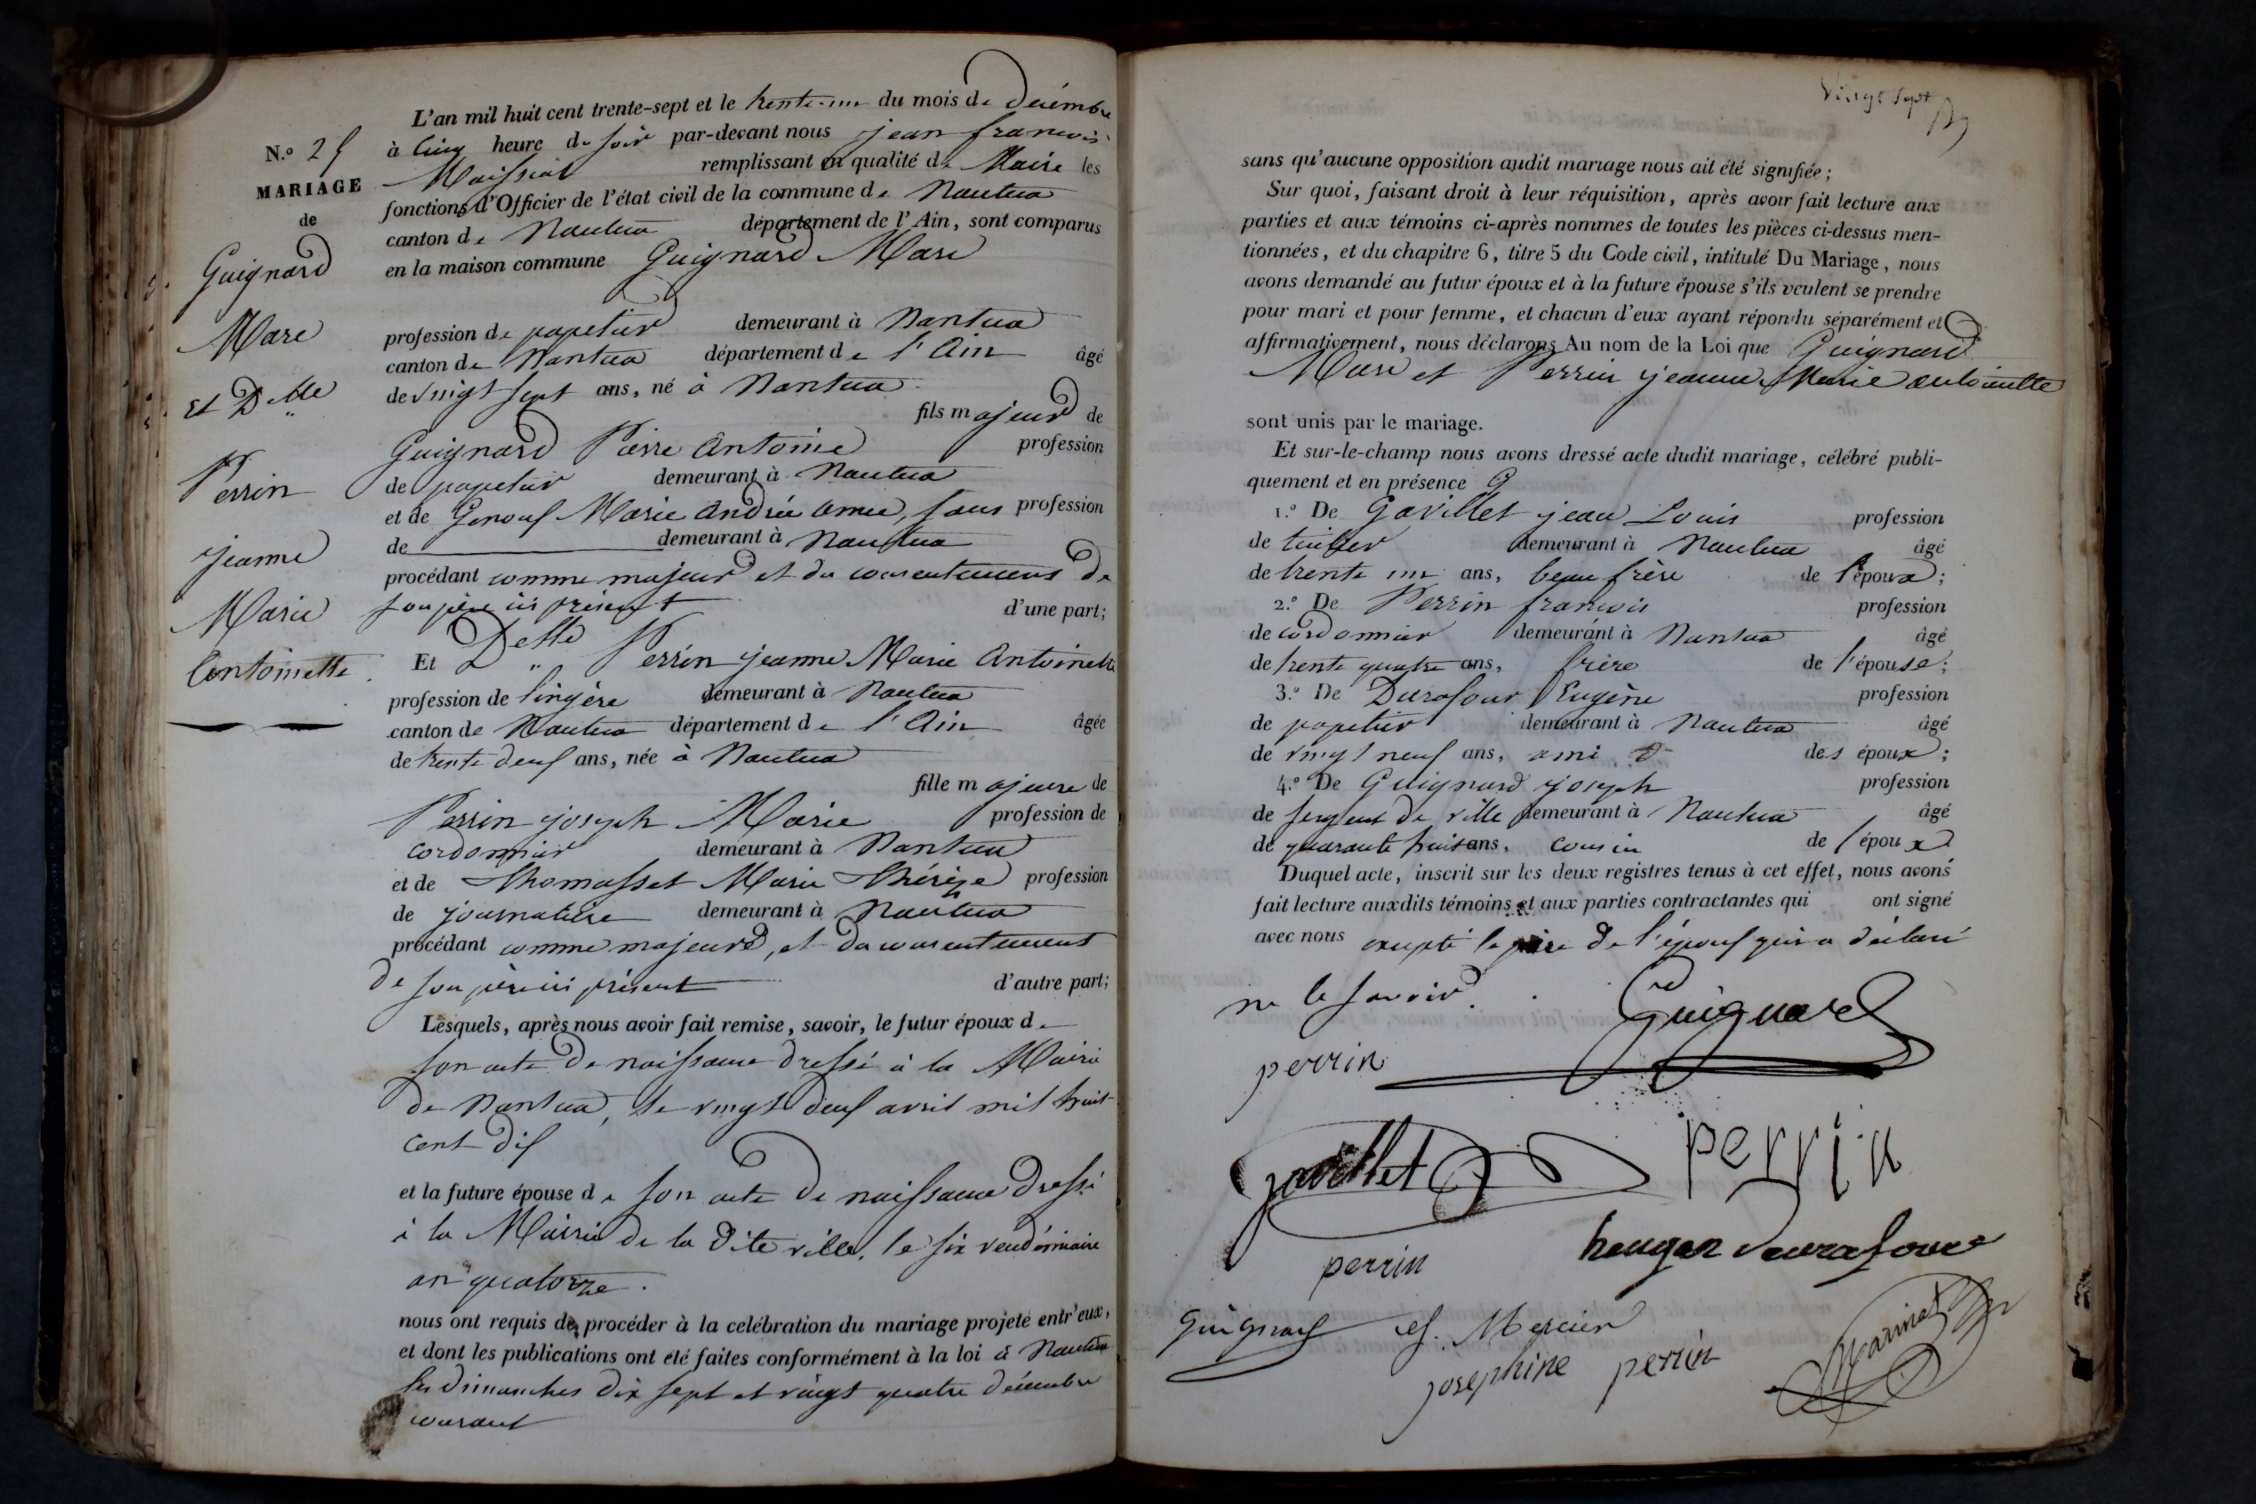 L'an mil huit cent trente-sept et le trente-un du mois de Décembre
à Cinq heure du Soir par-devant nous jean francois
N.o 25
Maissiat remplissant en qualité de Maire les
MARIAGE
fonctions d'Officier de l'état civil de la commune de Nantua
de
canton de Nantua département de l'Ain, sont comparus
Guignard
en la maison commune Guignard Marc
Marc
profession de papetier demeurant à Nantua
canton de Nantua département de l'Ain âgé
et Delle
de vingt sept ans, né à Nantua
fils majeur de
Guignard Pierre Antoine profession
Perrin
de papetier demeurant à Nantua
et de Marie Andrée aimée, sans profession
jeanne
de demeurant à Nantua
procédant comme majeur et du consentement de
Marie
son père ici présent d'une part;
Antoinette
Et Delle Perrin jeanne Marie Antoinette
profession de lingère demeurant à Nantua
canton de Nantua département de l'Ain âgée
de trente deux ans, née à Nantua
fille majeure de
Perrin joseph Marie profession de
cordonnier demeurant à Nantua
et de Thomasset Marie Thérèze profession
de journalière demeurant à Nantua
procédant comme majeure, et du consentement
de son père ici présent d'autre part;
Lesquels, après nous avoir fait remise, savoir, le futur époux de
son acte de naissance dressé à la Mairie
de Nantua, le vingt deux avril mil huit
cent dix
et la future épouse de son acte de naissance dressé
à la Mairie de la dite ville, le six vendémiaire
an quatorze.
nous ont requis de procéder à la celébration du mariage projeté entr'eux,
et dont les publications ont été faites conformément à la loi à Nantua
les dimanches dix sept et vingt quatre décembre
courant
vingt sept
sans qu'aucune opposition audit mariage nous ait été signifiée;
Sur quoi, faisant droit à leur réquisition, après avoir fait lecture aux
parties et aux témoins ci-après nommes de toutes les pièces ci-dessus men-
tionnées, et du chapitre 6, titre 5 du Code civil, intitulé Du Mariage, nous
avons demandé au futur époux et à la future épouse s'ils veulent se prendre
pour mari et pour femme, et chacun d'eux ayant répondu séparément et
affirmativement, nous déclarons Au nom de la Loi que Guignard
Marc et Perrin jeanne Marie antoinette
sont unis par le mariage.
Et sur-le-champ nous avons dressé acte dudit mariage, célébré publi-
quement et en présence
1.o De Gavillet jean Louis profession
de demeurant à Nantua âgé
de trente un ans, beau frère de l'époux;
2.o De Perrin francois profession
de cordonnier demeurant à Nantua âgé
de trente quatre ans, frère de l'épouse;
3.o De Durafour Eugène profession
de papetier demeurant à Nantua âgé
de vingt neuf ans, ami des époux;
4.o De Guignard joseph profession
de sergent de ville demeurant à Nantua âgé
de quarante huit ans, cousin de l'époux
Duquel acte, inscrit sur les deux registres tenus à cet effet, nous avons
fait lecture auxdits témoins et aux parties contractantes qui ont signé
avec nous excepté le père de l'époux qui a déclaré
ne le savoir.
Guignard
perrin
gavillet perrin
perrin heugen durafour
Guignard Mercier
josephine perrin